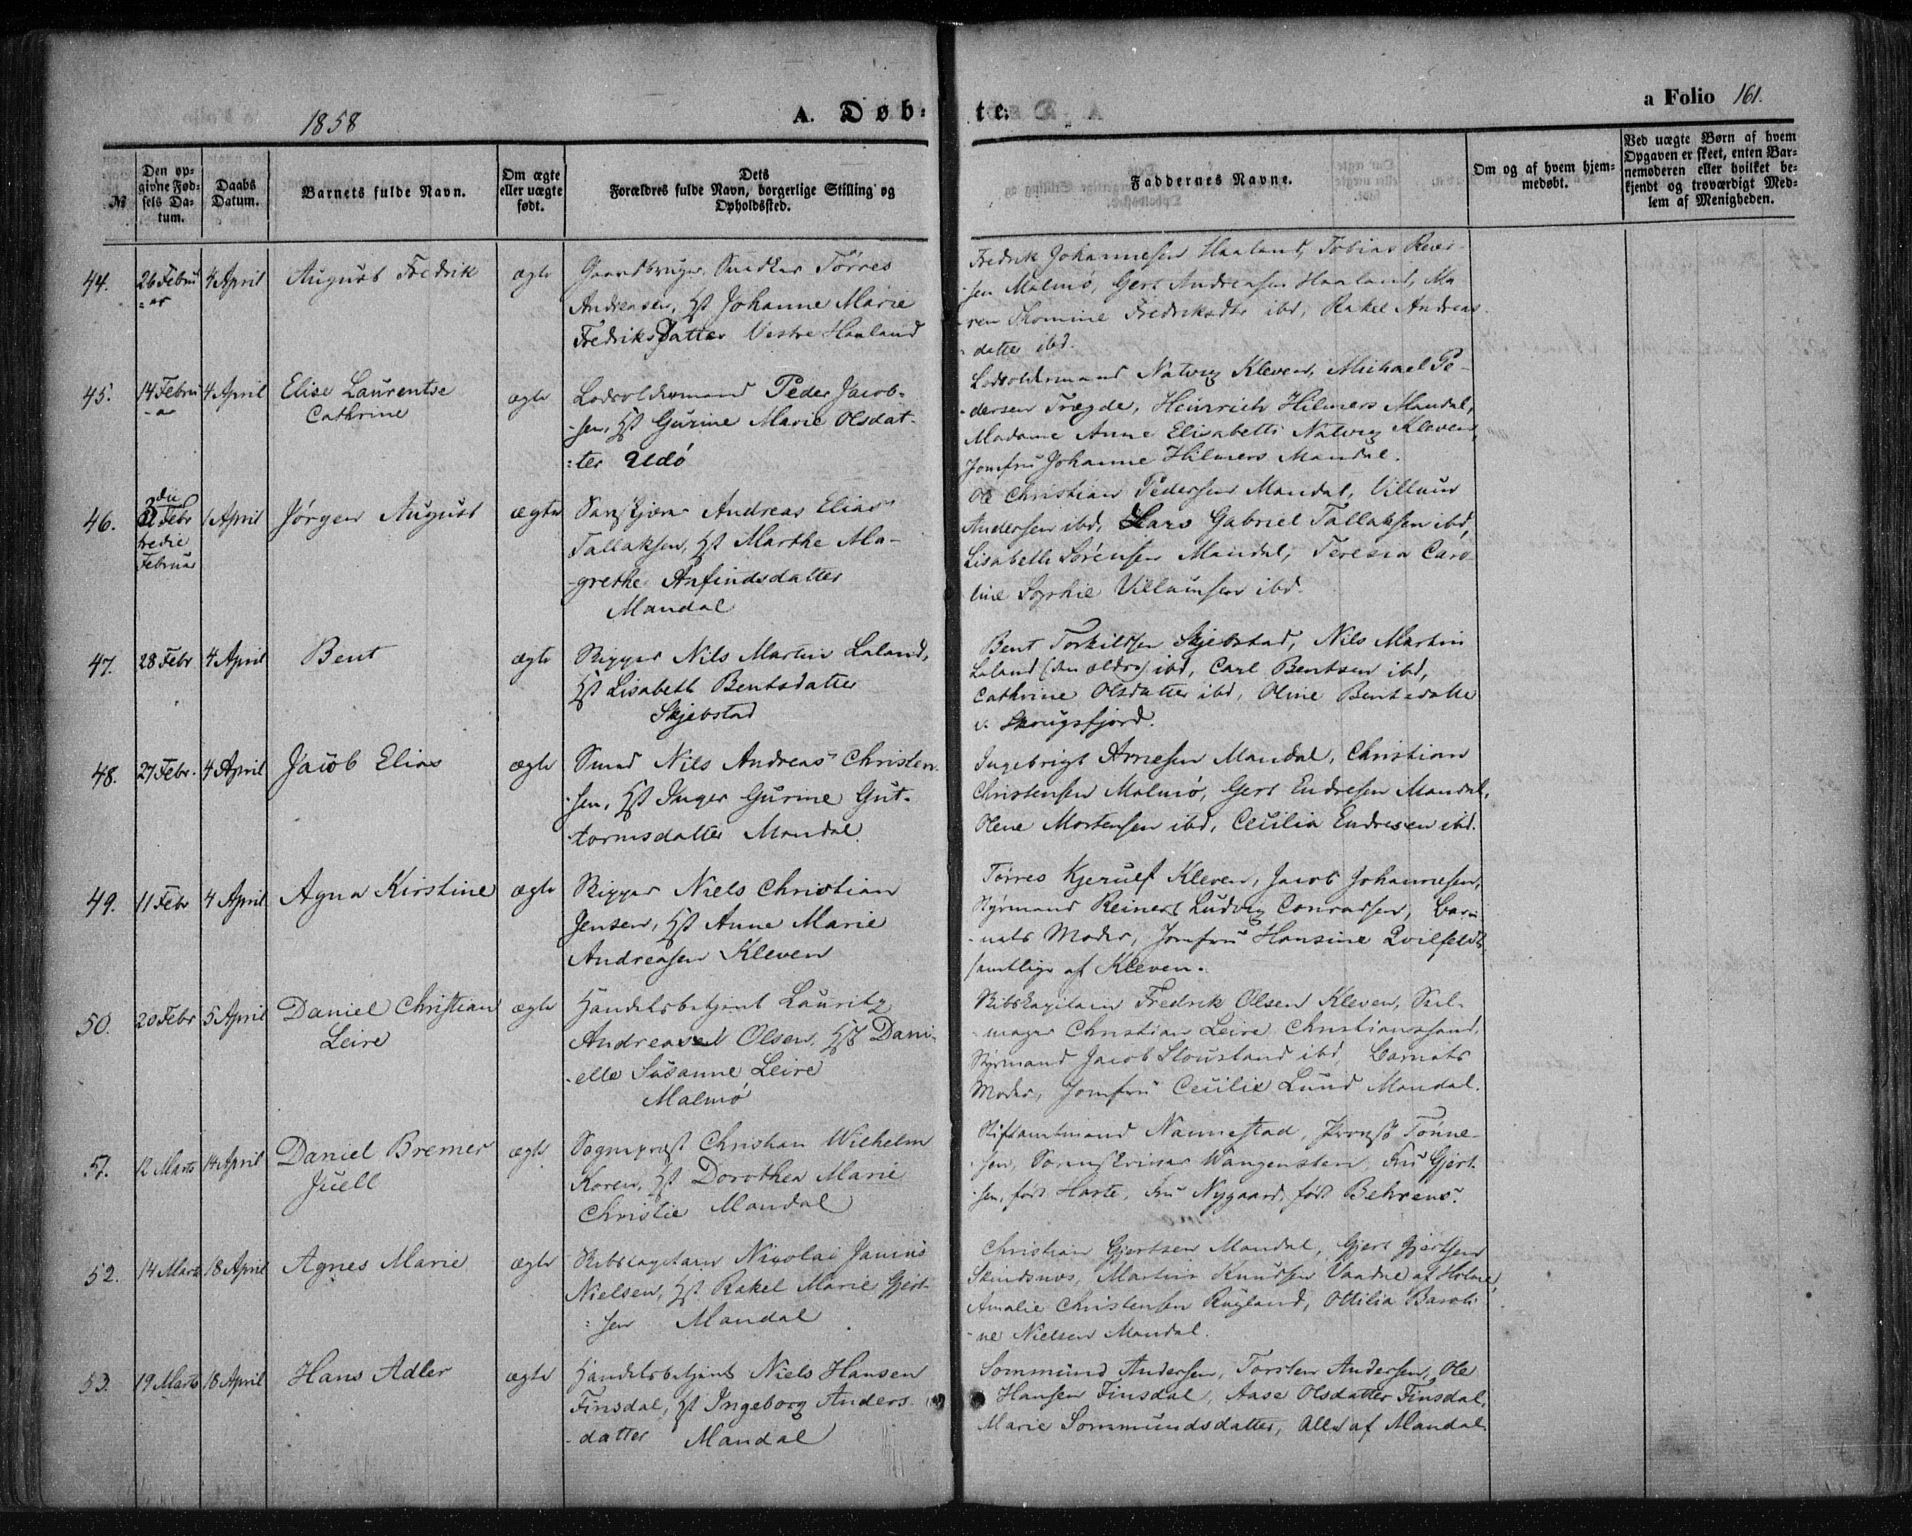 1858
A. Døb-
te.
a Folio 161.
№
Den op-
givne Fød-
sels Da-
tum.
Daabs
Datum.
Barnets fulde Navn.
Om ægte
eller uægte
født.
Dets
Forældres fulde Navn, borgerlige Stilling og
Opholdssted.
Faddernes Navne.
Om og af hvem hjem-
medøbt.
Ved uægte Børn af hvem
Opgaven er skeet, enten Bar-
nemoderen eller hvilket be-
kjendt og troværdigt Med-
lem af Menigheden.
44.
26 Febru
-ar
4 April
August Fredrik
ægte
Gaardbruger, Snedker Tørres
Andreasen, Hst Johanne Marie
FredriksDatter Vestre Haaland
Fredrik Johannesen Haaland, Tobias Reier-
-sen Malmø, Gert Andreasen Haaland, Ma-
ren Thomine Fredriksdtr ibd, Rakel Andreas
-datter ibd.
45.
14 Febru
-ar
4 April
Elise Laurentse
Cathrine
ægte
Lodsoldermand Peder Jacob-
-sen, Hst Gurine Marie Olsdat-
-ter Udø
Lodsoldermand Natvig Kleven, Michael Pe-
-dersen Trægde, Heinrich Hilmers Mandal,
Madame Anne Elisabeth Natvig Kleven,
Jomfru Johanne Hilmers Mandal.
46.
Febr
tredie
Februar
1 April
Jørgen August
ægte
Andreas Elias
Tallaksen, Hst Marthe Ma-
-grethe Anfindsdatter
Mandal
Ole Christian Pedersen Mandal, Villum
Andersen ibd, Lars Gabriel Tallaksen ibd,
Lisabeth Sørensen Mandal, Teresia Caro-
line Sophie Villumsen ibd.
47.
28 Febr
4 April
Bent
ægte
Skipper Nils Martin Laland,
Hst Lisabeth Bentsdatter
Skjebstad
Bent Torkildsen Skjebstad, Nils Martin
Laland (den ældre) ibd, Carl Bentsen ibd,
Cathrine Olsdatter ibd, Oline Bentsdatter
v. Skougsfjord.
48.
27 Febr.
4 April
Jacob Elias
ægte
Smed Nils Andreas Christen-
-sen, Hst Inger Gurine Gut-
-tormsdatter Mandal.
Ingebrigt Arnesen Mandal, Christian
Christensen Malmø, Gert Endresen Mandal,
Olene Mortensen ibd, Cecilia Endresen ibd.
49.
11 Febr
4 April
Agna Kirstine
ægte
Skipper Niels Christian
Jensen, Hst Anne Marie
Andreasen Kleven
Tørres Kjerulf Kleven, Jacob Johannesen,
Styrmand Reinert Ludvig Conradsen, Bar-
-nets Moder, Jomfru Hansine Qvilfeldt
samtlige af Kleven.
50.
20 Febr
5 April
Daniel Christian
Leire
ægte
Handelsbetjent Lauritz
Andreased Olsen, Hst Dani-
-elle Susanne Leire
Malmø
Skibskapitain Fredrik Olsen Kleven, Seil-
-mager Christian Leire Christianssand,
Styrmand Jacob Stousland ibd, Barnets
Moder, Jomfru Cecilie Lund Mandal.
51.
12 Marts
14 April
Daniel Bremer
Juell
ægte
Sogneprest Christian Wilhelm
Koren, Hst Dorothea Marie
Christie Mandal
Stiftamtmand Nannestad, Provst Tønne-
-sen, Sorenskriver Wangensten, Fru Gjert-
-sen, født Harte, Fru Nygaard, født Behrens.
52.
14 Marts
18 April
Agnes Marie
ægte
Skibscaptain Nicolai Janius
Nielsen, Hst Rakel Marie Gjert-
-sen Mandal
Christian Gjertsen Mandal, Gjert Gjertsen
Skindsnes, Martin Knudsen Vaadne af Holme,
Amalie Christensen Rugland, Ottilia Baroli-
-ne Nielsen Mandal.
53.
19 Marts
18 April
Hans Adler
ægte
Handelsbetjent Niels Hansen
Finsdal, Hst Ingeborg Anders-
-datter Mandal
Sommund Andersen, Torsten Andersen, Ole
Hansen Finsdal, Aase Olsdatter Finsdal,
Marie Sommundsdatter, Alle af Mandal